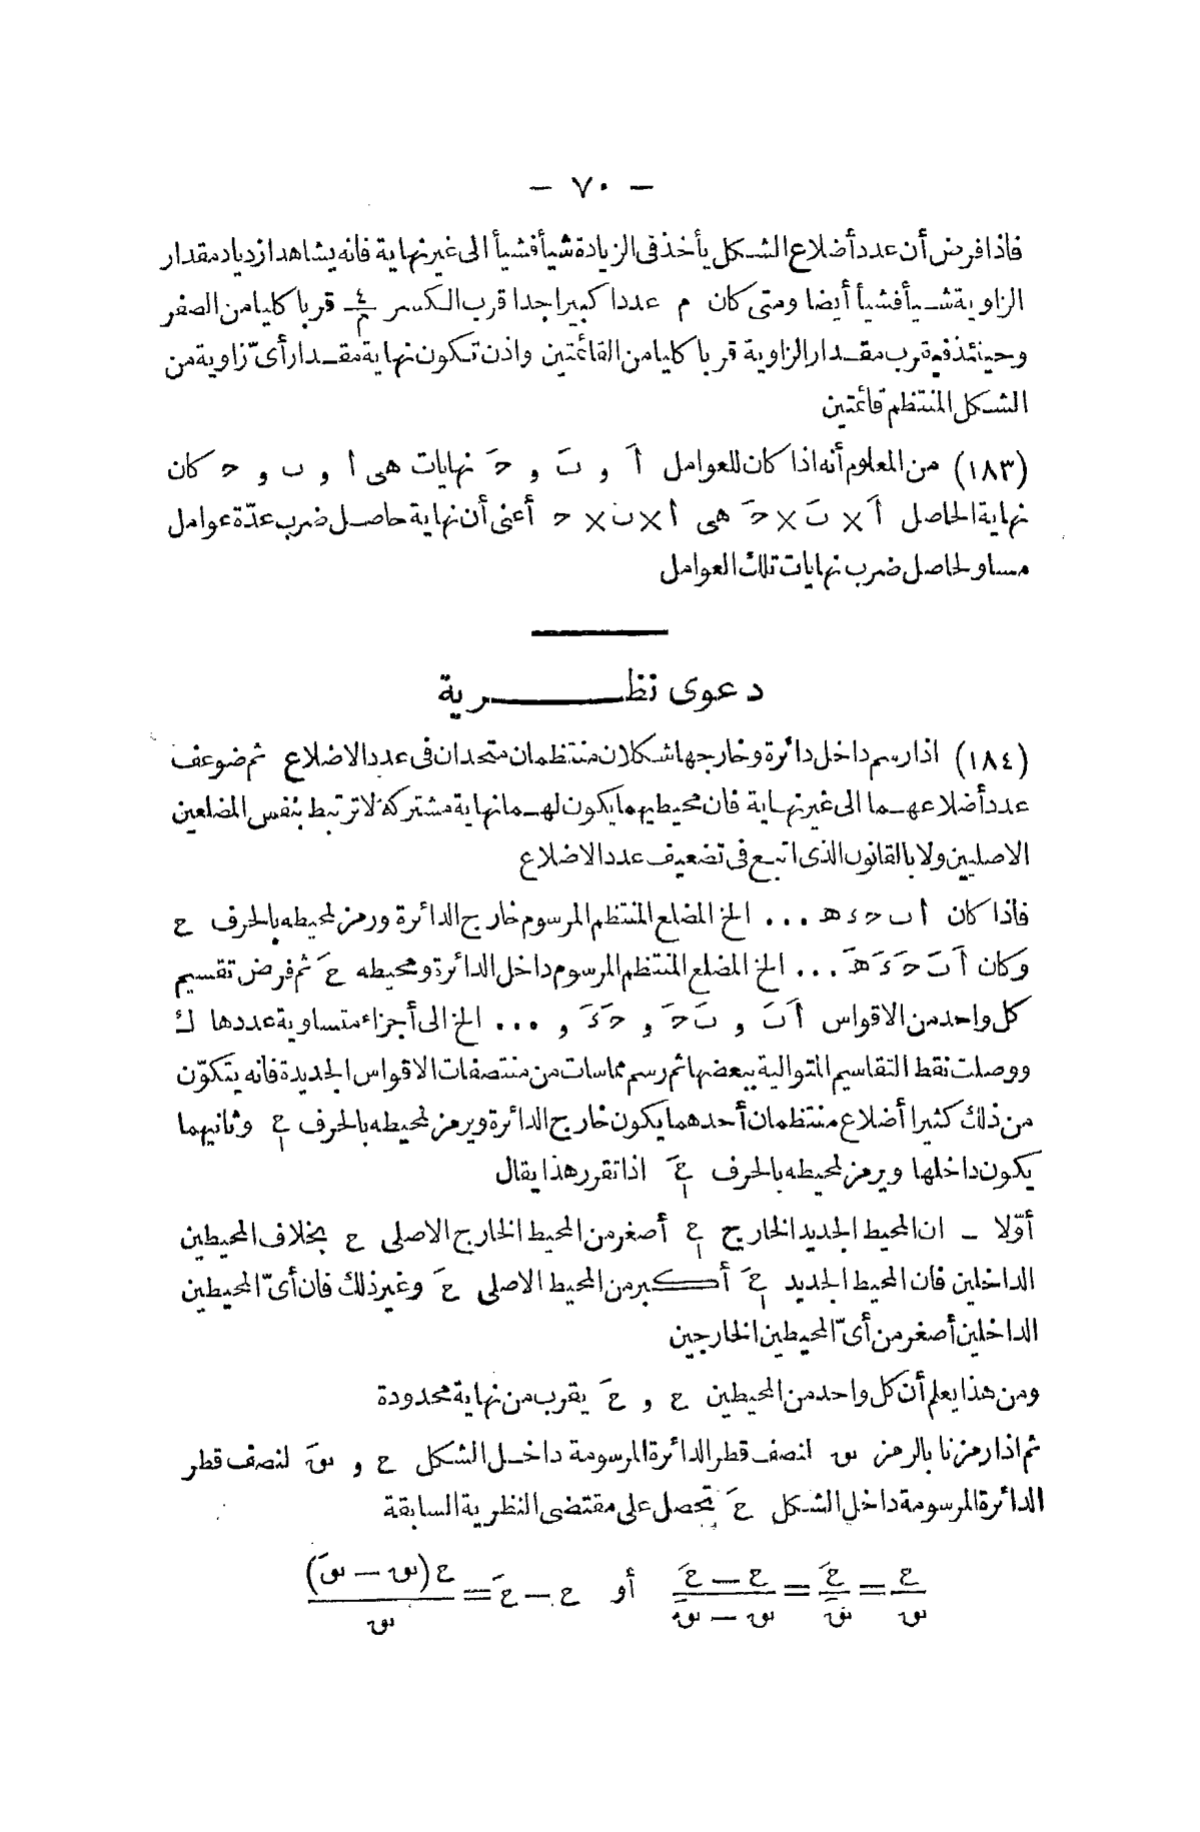 — ٧٠ —
فاذا فرض أن عدد أضلاع الشكل يأخذ فى الزيادة شيأ فشيأ الى غير نهاية فانه يشاهد ازدياد مقدار
الزاوية شيأ فشيأ أيضا ومتى كان م عددا كبيرا جدا قرب الكسر ٤/م قربا كليا من الصفر
وحينئذ فيقرب مقدار الزاوية قربا كليا من القائمتين واذن تكون نهاية مقدار أىّ زاوية من
الشكل المنتظم قائمتين
(١٨٣) من المعلوم أنه اذا كان للعوامل اَ و بَ و حَ نهايات هى ا و ب و ح كان
نهاية الحاصل اَ × بَ × حَ هى ا × ب × ح أعنى أن نهاية حاصل ضرب عدّة عوامل
مساو لحاصل ضرب نهايات تلك العوامل
دعوى نظرية
(١٨٤) اذا رسم داخل دائرة وخارجها شكلان منتظمان متحدان فى عدد الاضلاع ثم ضوعف
عدد أضلاعهما الى غير نهاية فان محيطيهما يكون لهما نهاية مشتركة لا ترتبط بنفس المضلعين
الاصليين ولا بالقانون الذى اتبع فى تضعيف عدد الاضلاع
فاذا كان ا ب ح د هـ ... الخ المضلع المنتظم المرسوم خارج الدائرة ورمز لمحيطه بالحرف ع
وكان اَ بَ حَ دَ هـَ ... الخ المضلع المنتظم المرسوم داخل الدائرة ومحيطه عَ ثم فرض تقسيم
كل واحد من الاقواس اَ بَ و بَ حَ و حَ دَ و ... الخ الى أجزاء متساوية عددها ك
ووصلت نقط التقاسيم المتوالية ببعضها ثم رسم مماسات من منتصفات الاقواس الجديدة فانه يتكوّن
من ذلك كثيرا أضلاع منتظمان أحدهما يكون خارج الدائرة ويرمز لمحيطه بالحرف ع١ وثانيهما
يكون داخلها ويرمز لمحيطه بالحرف عَ١ اذا تقرر هذا يقال
أوّلا — ان المحيط الجديد الخارج ع١ أصغر من المحيط الخارج الاصلى ع بخلاف المحيطين
الداخلين فان المحيط الجديد عَ١ أكبر من المحيط الاصلى عَ وغير ذلك فان أىّ المحيطين
الداخلين أصغر من أىّ المحيطين الخارجين
ومن هذا يعلم أن كل واحد من المحيطين ع و عَ يقرب من نهاية محدودة
ثم اذا رمزنا بالرمز نق لنصف قطر الدائرة المرسومة داخل الشكل ع و نقَ لنصف قطر
الدائرة المرسومة داخل الشكل عَ تحصل على مقتضى النظرية السابقة
ع/نق = عَ/نقَ = (ع — عَ)/(نق — نقَ) أو ع — عَ = ع(نق — نقَ)/نق